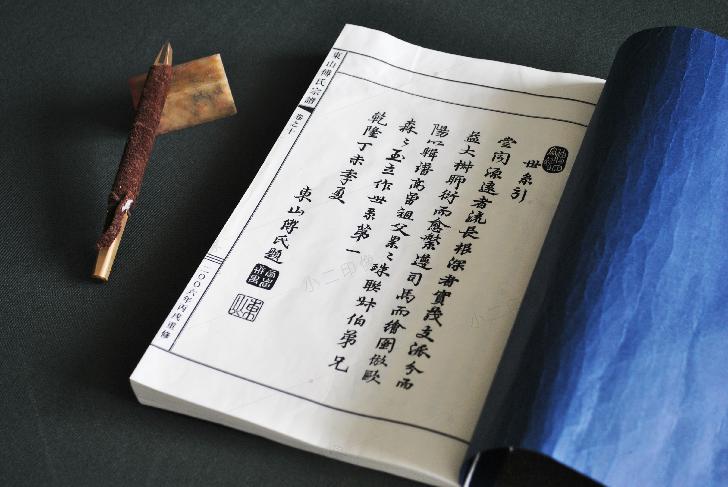 世系引
尝闻源遠者流長根深者實茂支派分而
益大椒聊衍而愈繁遵司馬而繪圖倣歐
陽以輯譜高曾祖父累々珠聯伯弟兄
森々玉立作世系第一
乾隆丁未季夏
東山傅氏題
東山傅氏宗譜
卷之十
二〇〇六年丙戌重修
小二印像